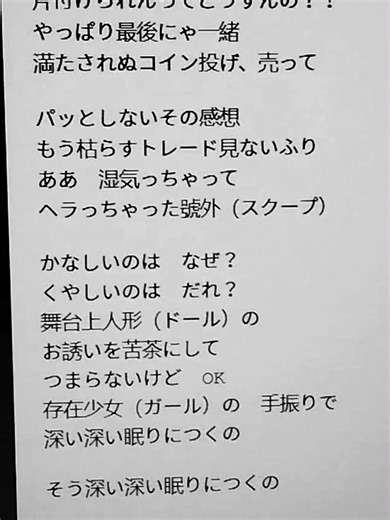 片付けられんってどうすんの？！
やっぱり最後にゃ一緒
満たされぬコイン投げ、売って
パッとしないその感想
もう枯らすトレード見ないふり
ああ　湿気っちゃって
ヘラっちゃった號外（スクープ）
かなしいのは　なぜ？
くやしいのは　だれ？
舞台上人形（ドール）の
お誘いを苦茶にして
つまらないけど　OK
存在少女（ガール）の　手振りで
深い深い眠りにつくの
そう深い深い眠りにつくの